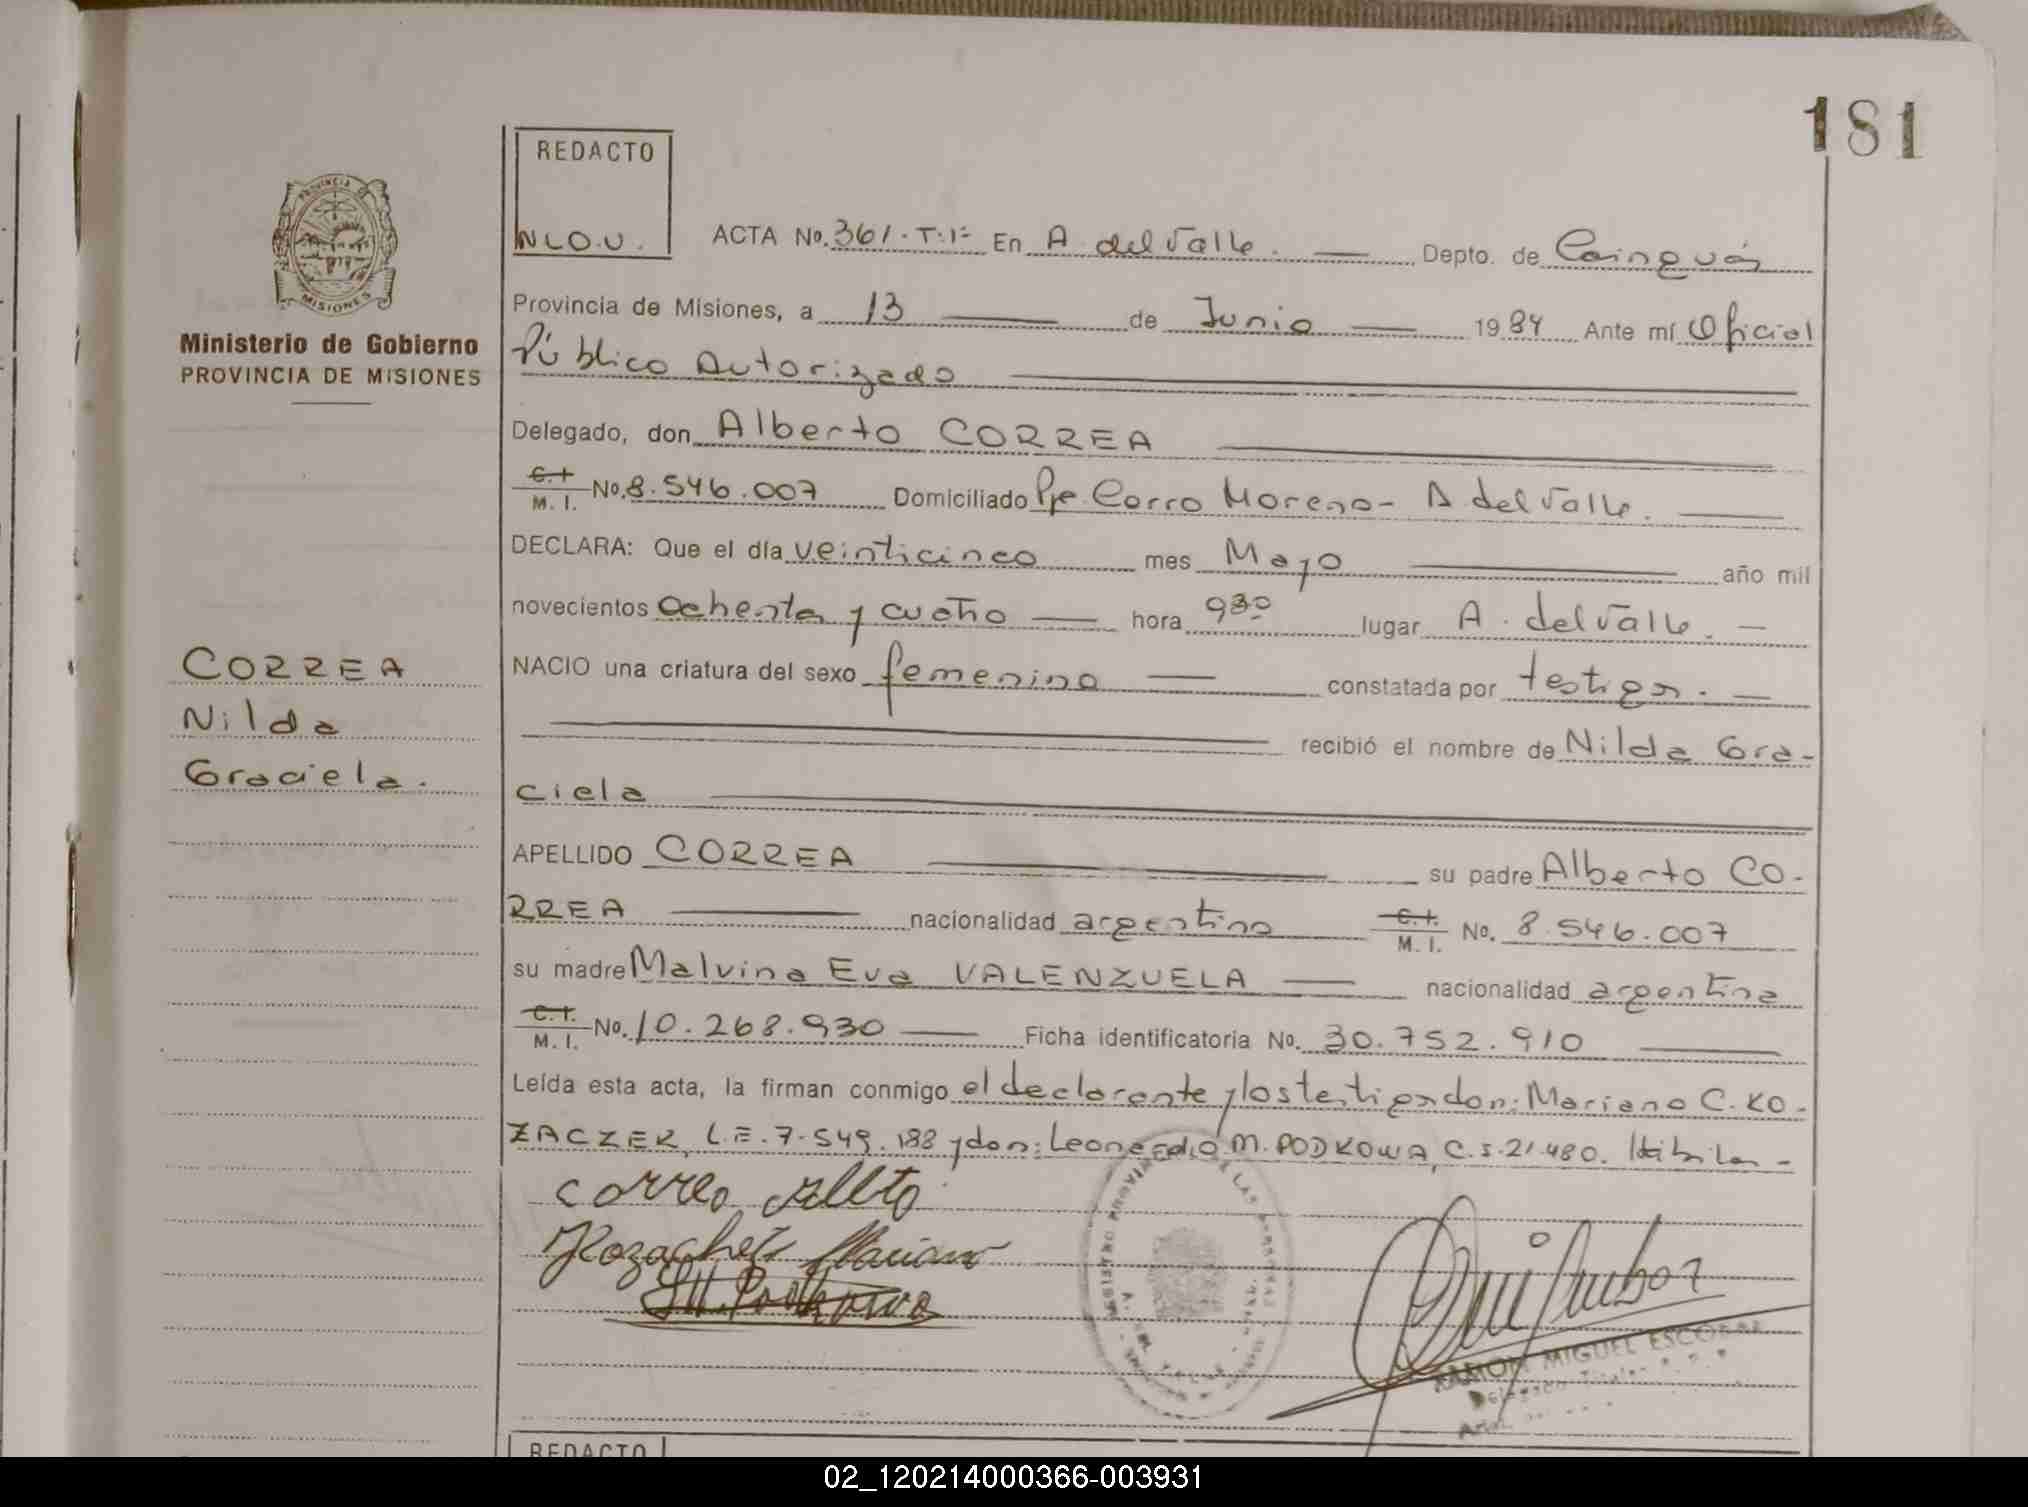 181
REDACTO
NLO.U.
ACTA No. 361.T:1º En A. del Valle. Depto. de Cainguás
Provincia de Misiones, a 13 de Junio 1984 Ante mí Oficial
Público Autorizado
Delegado, don Alberto CORREA
C.I. M. I. No. 8.546.007 Domiciliado Pje Cerro Moreno - A del Valle.
DECLARA: Que el día veinticinco mes Mayo año mil
novecientos Ochenta y cuatro hora 930 lugar A. del Valle.
NACIO una criatura del sexo femenino constatada por testigos.
recibió el nombre de Nilda Gra-
ciela
APELLIDO CORREA su padre Alberto CO-
RREA nacionalidad argentino C.I. M. I. No. 8.546.007
su madre Malvina Eva VALENZUELA nacionalidad argentina
C.I. M. I. No. 10.268.930 Ficha identificatoria No. 30.752.910
Leída esta acta, la firman conmigo el declarante y los testigos don: Mariano C. KO-
ZACZEK, L.E. 7.549.188 y don: Leonardo M. PODKOWA, C.I. 21.480.
Correa Alberto
Mariano
Ministerio de Gobierno
PROVINCIA DE MISIONES
PROVINCIA DE
MISIONES
CORREA
Nilda
Graciela.
RAMON MIGUEL ESCOBAR
REDACTO
02_120214000366-003931